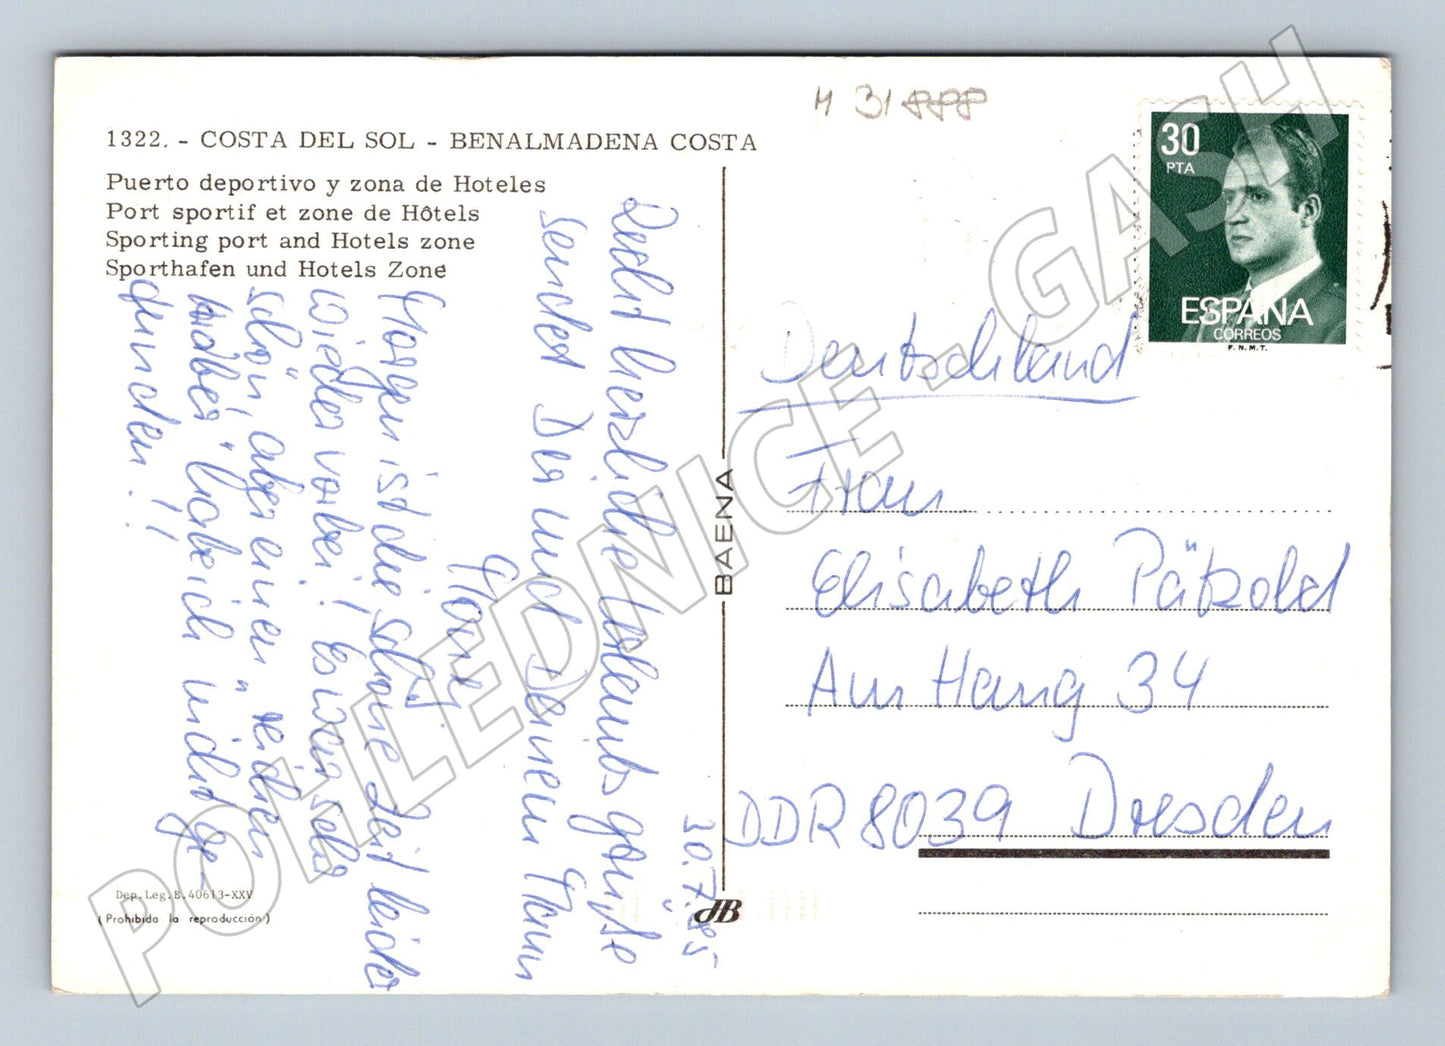 H 31888
1322. - COSTA DEL SOL - BENALMADENA COSTA
Puerto deportivo y zona de Hoteles
Port sportif et zone de Hôtels
Sporting port and Hotels zone
Sporthafen und Hotels Zone
30
PTA
ESPAÑA
CORREOS
F.N.M.T.
30.7.85
Recht herzliche Urlaubsgrüße
sendet Dir und Deinem Mann
Morgen ist die schöne Zeit leider
wieder vorbei! Es war sehr
schön, aber einen "reichen
habe ich nicht ge-
funden!!
BAENA
Deutschland
Frau
Elisabeth Pätzold
Am Hang 34
DDR 8039 Dresden
Dep. Leg. B. 40613-XXV
(Prohibida la reproducción)
JB
POHLEDNICE - GASH